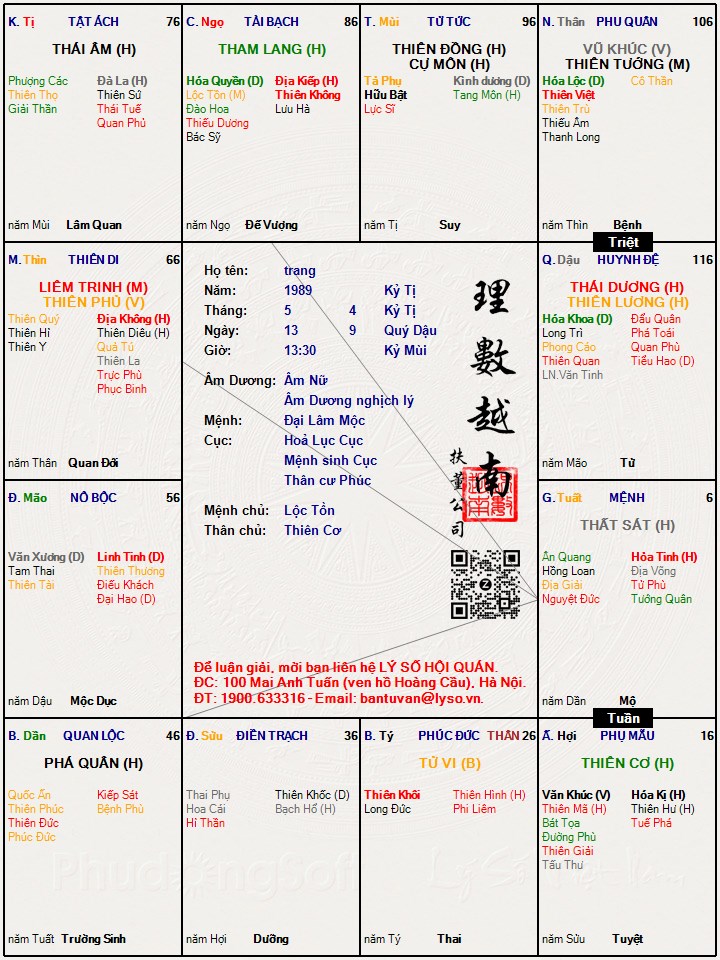 K. Tị TẬT ÁCH 76
THÁI ÂM (H)
Phượng Các Đà La (H)
Thiên Thọ Thiên Sứ
Giải Thần Thái Tuế
Quan Phủ
năm Mùi Lâm Quan
C. Ngọ TÀI BẠCH 86
THAM LANG (H)
Hóa Quyền (D) Địa Kiếp (H)
Lộc Tồn (M) Thiên Không
Đào Hoa Lưu Hà
Thiếu Dương
Bác Sỹ
năm Ngọ Đế Vượng
T. Mùi TỬ TỨC 96
THIÊN ĐỒNG (H)
CỰ MÔN (H)
Tả Phụ Kình dương (D)
Hữu Bật Tang Môn (H)
Lực Sĩ
năm Tị Suy
N. Thân PHU QUÂN 106
VŨ KHÚC (V)
THIÊN TƯỚNG (M)
Hóa Lộc (D) Cô Thần
Thiên Việt
Thiên Trù
Thiếu Âm
Thanh Long
năm Thìn Bệnh
Triệt
M. Thìn THIÊN DI 66
LIÊM TRINH (M)
THIÊN PHỦ (V)
Thiên Quý Địa Không (H)
Thiên Hỉ Thiên Diêu (H)
Thiên Y Quả Tú
Thiên La
Trực Phù
Phục Binh
năm Thân Quan Đới
Họ tên: trang
Năm: 1989 Kỷ Tị
Tháng: 5 4 Kỷ Tị
Ngày: 13 9 Quý Dậu
Giờ: 13:30 Kỷ Mùi
Âm Dương: Âm Nữ
Âm Dương nghịch lý
Mệnh: Đại Lâm Mộc
Cục: Hoả Lục Cục
Mệnh sinh Cục
Thân cư Phúc
Mệnh chủ: Lộc Tồn
Thân chủ: Thiên Cơ
理數越南
扶董公司
Z
Để luận giải, mời bạn liên hệ LÝ SỐ HỘI QUÁN.
ĐC: 100 Mai Anh Tuấn (ven hồ Hoàng Cầu), Hà Nội.
ĐT: 1900.633316 - Email: bantuvan@lyso.vn.
Q. Dậu HUYNH ĐỆ 116
THÁI DƯƠNG (H)
THIÊN LƯƠNG (H)
Hóa Khoa (D) Đẩu Quân
Long Trì Phá Toái
Phong Cáo Quan Phù
Thiên Quan Tiểu Hao (D)
LN.Văn Tinh
năm Mão Tử
Đ. Mão NÔ BỘC 56
Văn Xương (D) Linh Tinh (D)
Tam Thai Thiên Thương
Thiên Tài Điếu Khách
Đại Hao (D)
năm Dậu Mộc Dục
G. Tuất MỆNH 6
THẤT SÁT (H)
Ân Quang Hỏa Tinh (H)
Hồng Loan Địa Võng
Địa Giải Tử Phù
Nguyệt Đức Tướng Quân
năm Dần Mộ
Tuần
B. Dần QUAN LỘC 46
PHÁ QUÂN (H)
Quốc Ấn Kiếp Sát
Thiên Phúc Bệnh Phù
Thiên Đức
Phúc Đức
năm Tuất Trường Sinh
Đ. Sửu ĐIỀN TRẠCH 36
Thai Phụ Thiên Khốc (D)
Hoa Cái Bạch Hổ (H)
Hỉ Thần
năm Hợi Dưỡng
B. Tý PHÚC ĐỨC THÂN 26
TỬ VI (B)
Thiên Khôi Thiên Hình (H)
Long Đức Phi Liêm
năm Tý Thai
Ấ. Hợi PHỤ MẪU 16
THIÊN CƠ (H)
Văn Khúc (V) Hóa Kị (H)
Thiên Mã (H) Thiên Hư (H)
Bát Tọa Tuế Phá
Đường Phù
Thiên Giải
Tấu Thư
năm Sửu Tuyệt